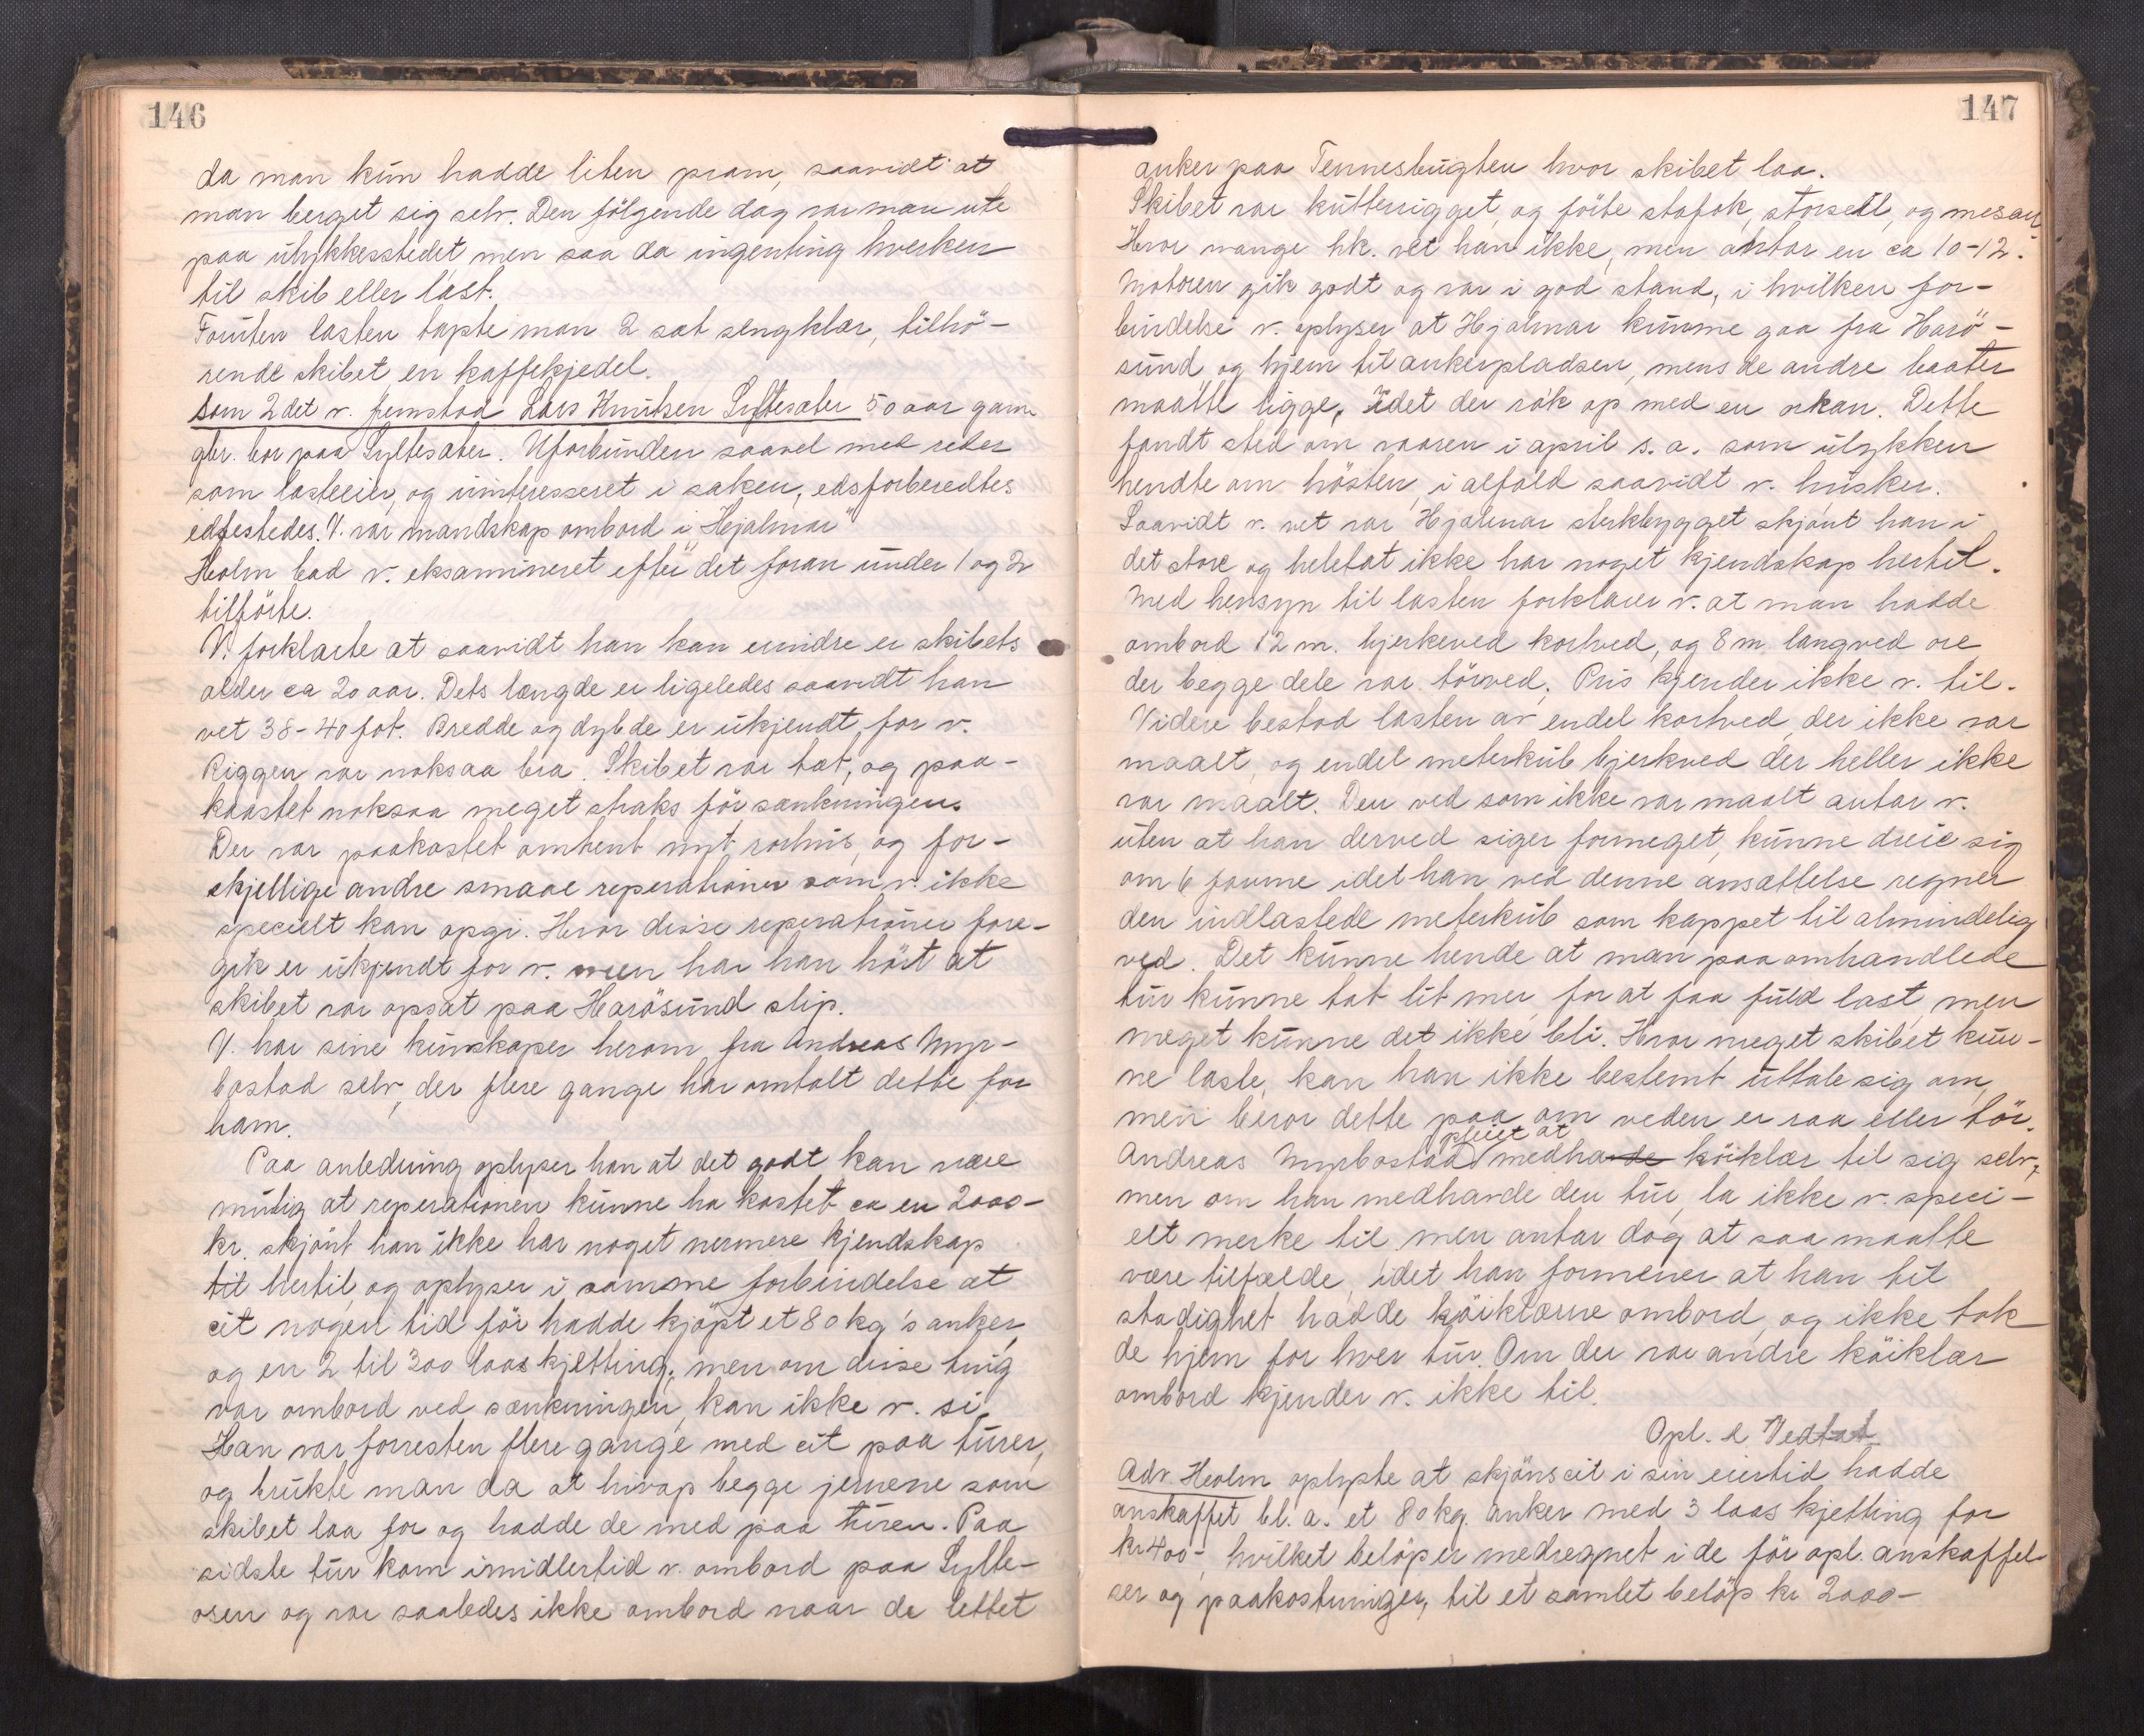 146
da man kun hadde liten pram, saavidt at
man berget sig selv. Den følgende dag var man ute
paa ulykkesstedet, men saa da ingenting hverken
til skib eller last.
Foruten lasten tapte man 2 sæt sengklær, tilhø-
rende skibet, en kaffekjedel.
Som 2det v. fremstod Lars Knutsen Syltesæter 50 aar gam.
gbr. bor paa Syltesæter. Uforbunden saavel med reder
som lasteeier, og uinteresseret i saken, edsforberedtes
edfestedes. V. var mandskap ombord i "Hjalmar"
Holm bad v. eksamineret efter det foran under 1 og 2
tilførte.
V. forklarte at saavidt han kan erindre er skibets
alder ca 20 aar. Dets længde er ligeledes saavidt han
vet 38-40 fot. Bredde og dybde er ukjendt for v.
Riggen var noksaa bra. Skibet var tæt, og paa-
kostet noksaa meget straks før sænkningen.
Der var paakostet omtrent nyt rorhus, og for-
skjellige andre smaae reperationer som v. ikke
specielt kan opgi. Hvor disse reperationer fore-
gik er ukjendt for v. men har han hørt at
skibet var opsat paa Harøsund slip.
V. har sine kunskaper herom fra Andreas Myr-
bostad selv, der flere gange har omtalt dette for
ham.
Paa anledning oplyser han at det godt kan være
mulig at reperationen kunne ha kostet ca en 2000-
kr. skjønt han ikke har noget nermere kjendskap
til hertil, og oplyser i samme forbindelse at
eit nogen tid før hadde kjøpt et 80 kg's anker,
og en 2 til 300 laas kjetting, men om disse ting
var ombord ved sænkningen, kan ikke v. si.
Han var forresten flere gange med eit paa turer,
og brukte man da at hivop begge jernene som
skibet laa for og hadde de med paa turen. Paa
sidste tur kom imidlertid v. ombord paa Sylte-
osen og var saaledes ikke ombord naar de lettet
147
anker paa Tennesbugten hvor skibet laa.
Skibet var kutterrigget, og førte stafok, storseil, og mesan
Hvor mange hk. vet han ikke, men antar en ca 10-12.
Motoren gik godt og var i god stand, i hvilken for-
bindelse v. oplyser at Hjalmar kunne gaa fra Harø-
sund og hjem til ankerpladsen, mens de andre baater
maatte ligge, idet der røk op med en orkan. Dette
fandt sted om vaaren i april s. a. som ulykken
hendte om høsten, i alfald saavidt v. husker.
Saavidt v. vet var Hjalmar sterkbygget skjønt han i
det store og heletat ikke har noget kjendskap hertil.
Med hensyn til lasten forklarer v. at man hadde
ombord 12 m. bjerkeved kortved, og 8 m. langved ore
der begge dele var tørved. Pris kjender ikke v. til.
Videre bestod lasten av endel kortved, der ikke var
maalt, og endel meterkub bjerkved der heller ikke
var maalt. Den ved som ikke var maalt antar v.
uten at han derved siger formeget, kunne dreie sig
om 6 favne idet han ved denne ansættelse regner
den indlastede meterkub som kappet til almindelig
ved. Det kunne hende at man paa omhandlede
tur kunne tat lit mer, for at faa fuld last, men
meget kunne det ikke bli. Hvor meget skibet kun-
ne laste, kan han ikke bestemt uttale sig om,
men beror dette paa om veden er raa eller tør.
Andreas Myrbostad pleiet at medhavde køiklær til sig selv,
men om han medhavde den tur, la ikke v. speci-
elt merke til, men antar dog at saa maatte
være tilfælde, idet han formener at han til
stadighet hadde køiklærne ombord, og ikke tok
de hjem for hver tur. Om der var andre køiklær
ombord kjender v. ikke til.
Opl. & Vedtat
Adv. Holm oplyste at skjønseit i sin eiertid hadde
anskaffet bl. a. et 80 kg. anker med 3 laas kjetting for
kr 400-, hvilket beløp er medregnet i de før opl. anskaffel-
ser og paakostninger, til et samlet beløp kr 2000-